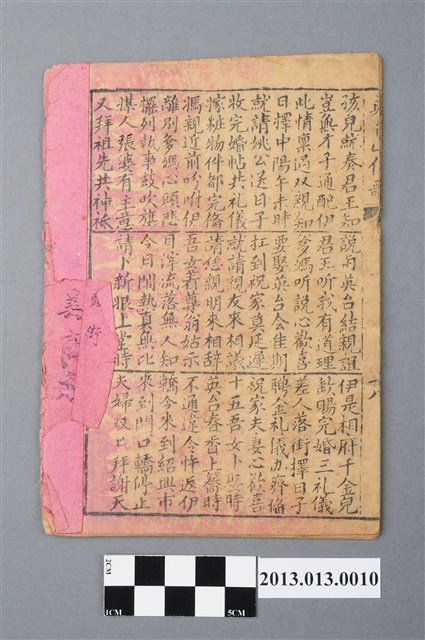 孩兒就奏君王知 說与英台結親誼 伊是相府千金兒
豈無才子通配伊 君王听我有道理 欽賜完婚三礼儀
此情禀過双親知 爹媽听說心歡喜 差人落街擇日子
日擇中陽午未時 要娶英台会佳期 聘金礼儀办齊俻
就請姚公送日子 扛到祝家莫延遲 祝家夫妻心歡喜
收完婚帖共礼儀 就請親友來相議 十五吾女卜
嫁粧物件都完俻 請恁親明來相辞 英台春香上轎時
媽親近前吩咐伊 吾女着尊翁姑示 不通違令悴返伊
離別爹媽心頭悲 目滓流落無人知 轎令來到紹興市
擺列執事鼓吹旗 今日鬧熱真無比 來到門口轎停止
媒人張婆有主意 請卜新娘上堂時 夫婦双口拜謝天
又拜祖先共神祗
十八
2CM
1CM
5CM
2013.013.0010